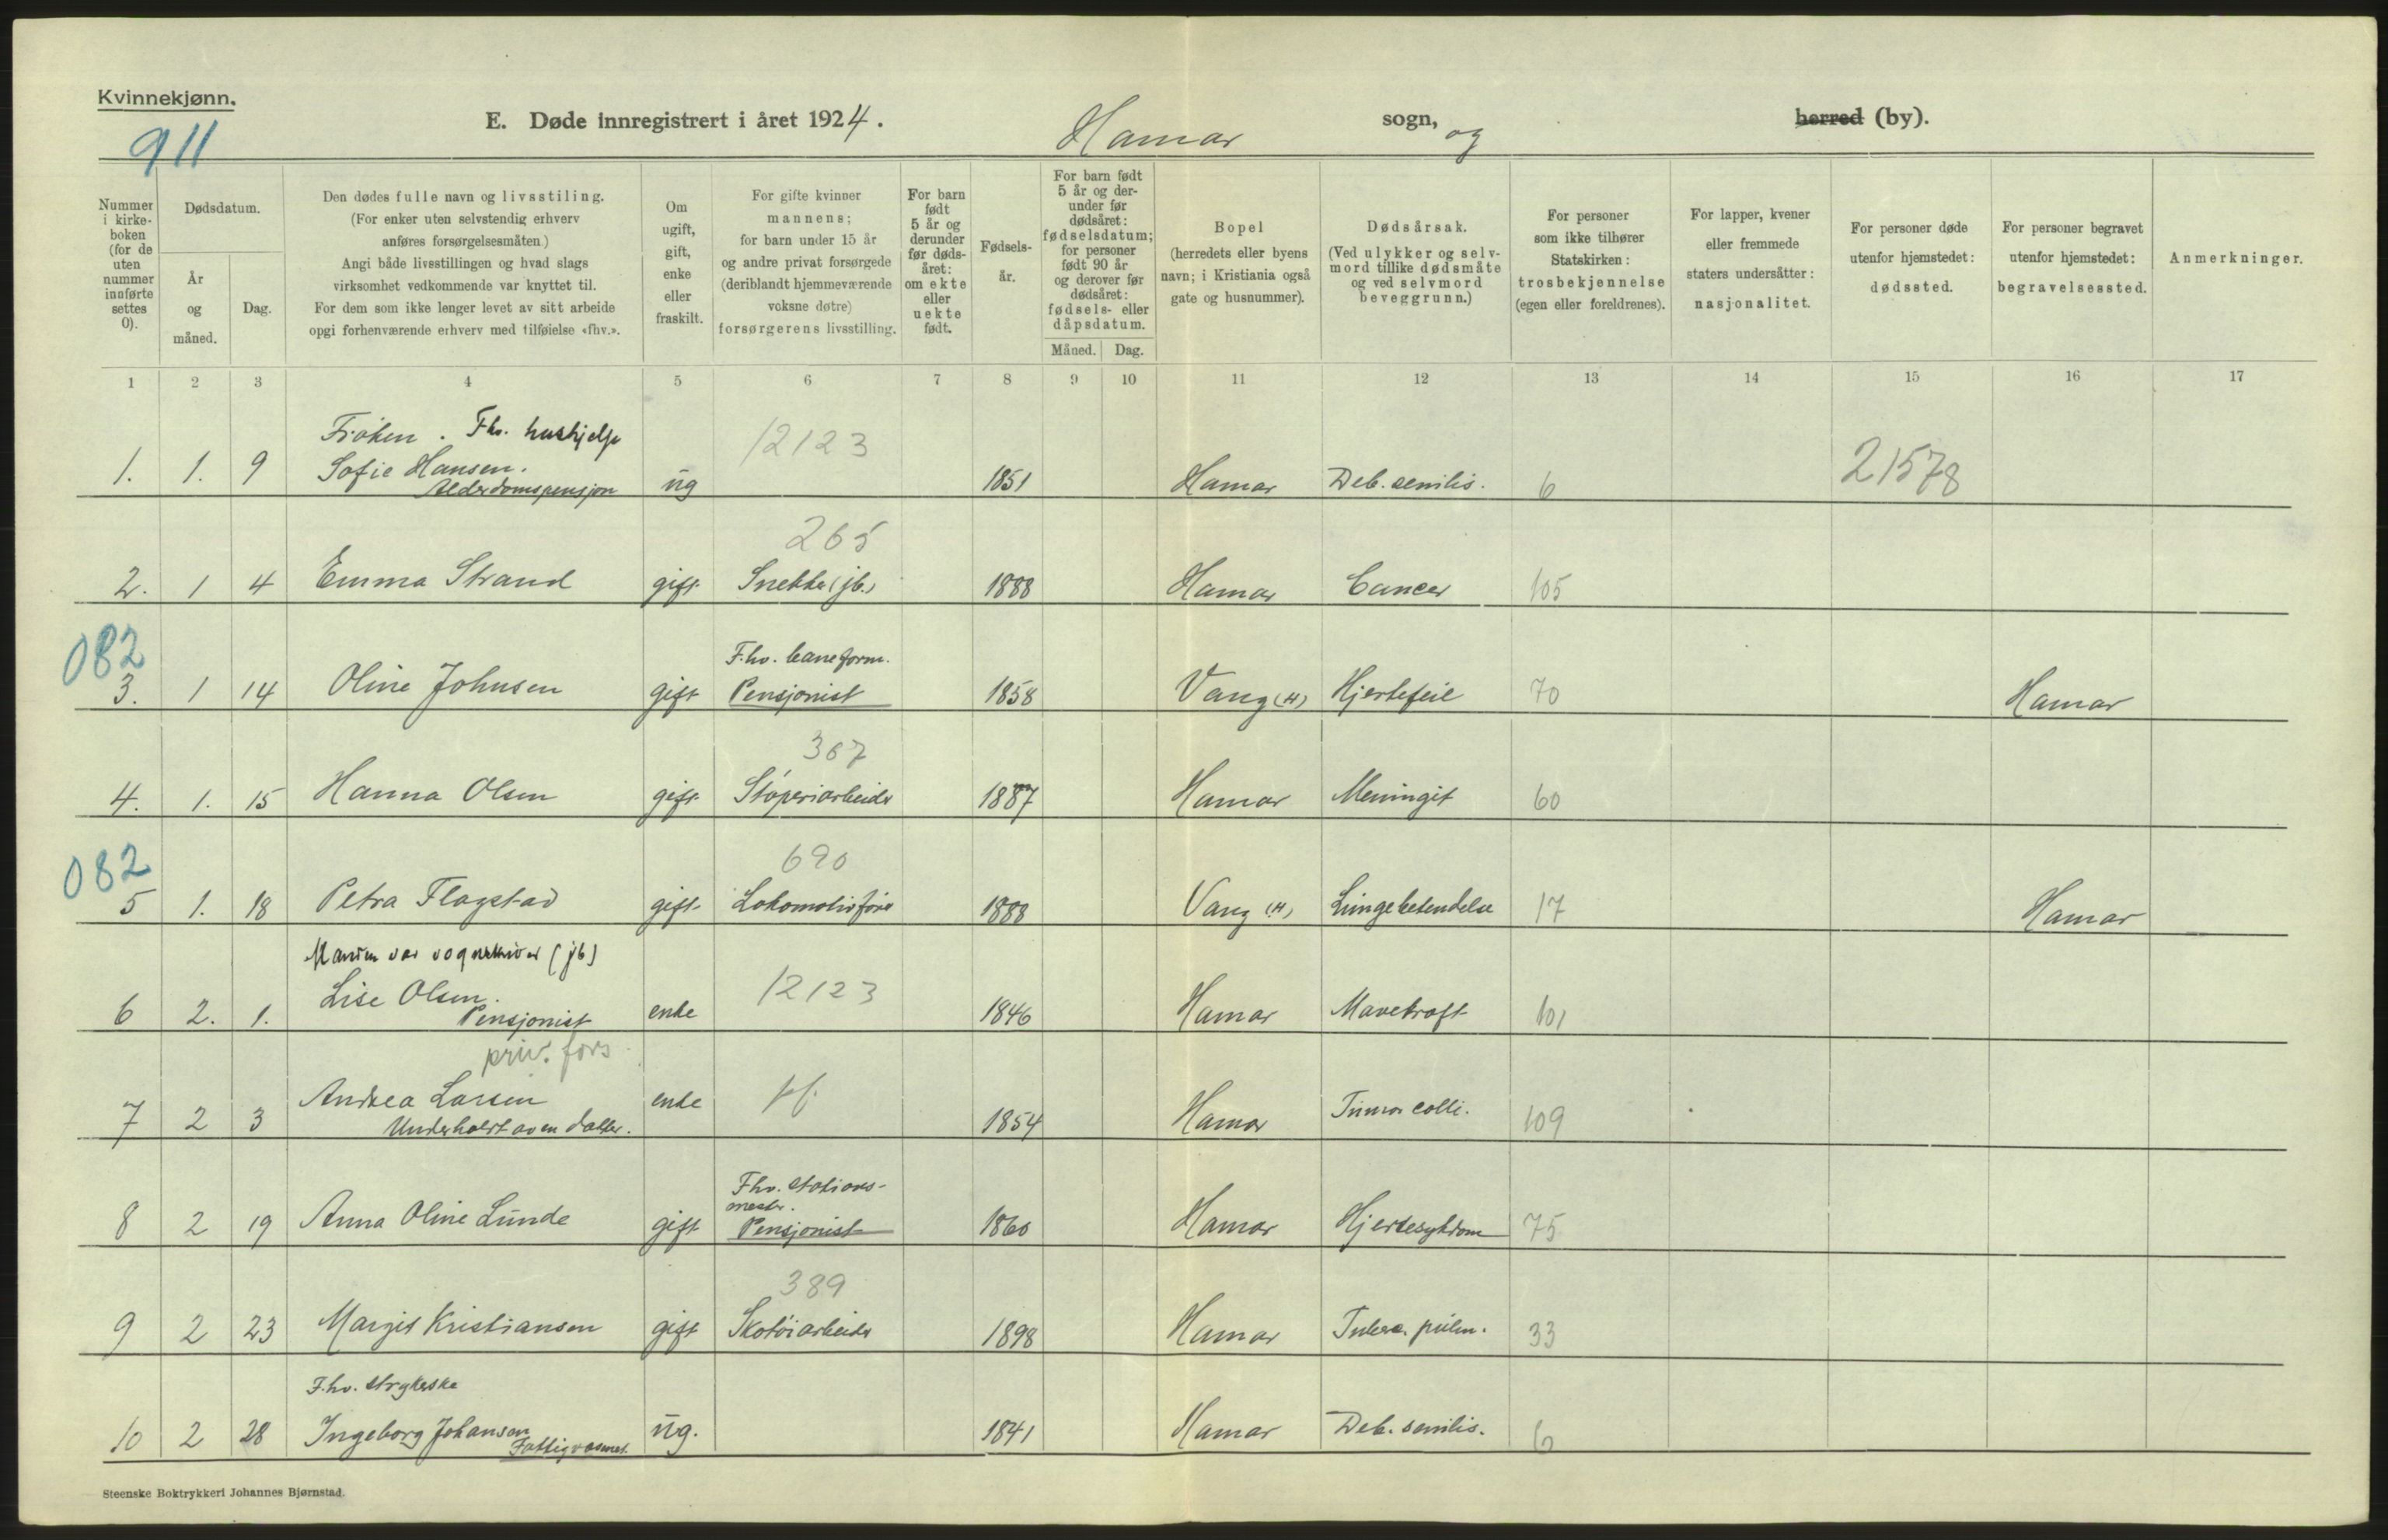 Kvinnekjønn.
911
E. Døde innregistrert i året 1924. Hamar sogn, og herred (by).
Nummer i kirke-boken (for de uten nummer innførte settes 0).
Dødsdatum.
År og måned.
Dag.
Den dødes fulle navn og livsstiling.
(For enker uten selvstendig erhverv
anføres forsørgelsesmåten.)
Angi både livsstillingen og hvad slags
virksomhet vedkommende var knyttet til.
For dem som ikke lenger levet av sitt arbeide
opgi forhenværende erhverv med tilføielse «fhv.».
Om ugift, gift, enke eller fraskilt.
For gifte kvinner
mannens;
for barn under 15 år
og andre privat forsørgede
(deriblandt hjemmeværende
voksne døtre)
forsørgerens livsstilling.
For barn født 5 år og derunder før døds-året: om ekte eller uekte født.
Fødsels-år.
For barn født 5 år og der-under før dødsåret: fødselsdatum; for personer født 90 år og derover før dødsåret: fødsels- eller dåpsdatum.
Måned. Dag.
Bopel
(herredets eller byens
navn; i Kristiania også
gate og husnummer).
Dødsårsak.
(Ved ulykker og selv-
mord tillike dødsmåte
og ved selvmord
beveggrunn.)
For personer
som ikke tilhører
Statskirken:
trosbekjennelse
(egen eller foreldrenes).
For lapper, kvener
eller fremmede
staters undersåtter:
nasjonalitet.
For personer døde
utenfor hjemstedet:
dødssted.
For personer begravet
utenfor hjemstedet:
begravelsessted.
Anmerkninger.
1 2 3 4 5 6 7 8 9 10 11 12 13 14 15 16 17
Frøken. Fhv. hushjelp 12123
1. 1. 9 Sofie Hansen. ug 1851 Hamar Deb. senilis. 6 21578
Alderdomspensjon
265
2. 1 4 Emma Strand gift Snekker (jb.) 1888 Hamar Cancer 105
082 F.hv. baneform.
3. 1 14 Oline Johnsen gift Pensjonist 1858 Vang (H) Hjertefeil 70 Hamar
367
4. 1. 15 Hanna Olsen gift Støperiarbeider 1887 Hamar Meningit 60
082 690
5 1. 18 Petra Flagstad gift Lokomotivfører 1888 Vang (H) Lungebetendelse 17 Hamar
Mannen var vognskriver (jb)
6 2. 1. Lise Olsen. enke 12123 1846 Hamar Mavekræft 101
Pensjonist
priv. fors.
7 2 3 Andrea Larsen enke pf. 1854 Hamar Tumor colli. 109
Underholdt av en datter.
Fhv. stations-
mester.
8 2 19 Anna Oline Lunde gift Pensjonist 1860 Hamar Hjertesykdom 75
389
9 2 23 Margit Kristiansen gift Skotøiarbeider 1898 Hamar Tuberc. pulm. 33
F.hv. strykerske
10 2 28 Ingeborg Johansen ug. 1841 Hamar Deb. senilis. 6
Fattigvæsenet.
Steenske Boktrykkeri Johannes Bjørnstad.